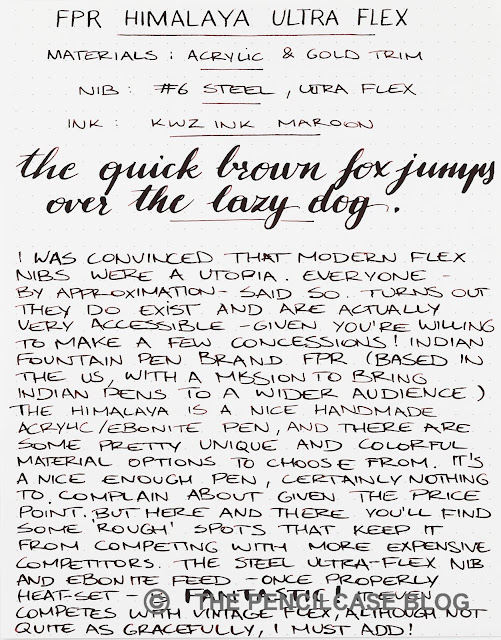 FPR HIMALAYA ULTRA FLEX
MATERIALS : ACRYLIC & GOLD TRIM
NIB : #6 STEEL , UTRA FLEX
INK : KWZ INK MAROON
the quick brown fox jumps
over the lazy dog .
I WAS CONVINCED THAT MODERN FLEX
NIBS WERE A UTOPIA. EVERYONE -
BY APPROXIMATION - SAID SO. TURNS OUT
THEY DO EXIST AND ARE ACTUALLY
VERY ACCESSIBLE - GIVEN YOU'RE WILLING
TO MAKE A FEW CONCESSIONS! INDIAN
FOUNTAIN PEN BRAND FPR (BASED IN
THE US, WITH A MISSION TO BRING
INDIAN PENS TO A WIDER AUDIENCE.)
THE HIMALAYA IS A NICE HANDMADE
ACRYLIC/EBONITE PEN, AND THERE ARE
SOME PRETTY UNIQUE AND COLORFUL
MATERIAL OPTIONS TO CHOOSE FROM. IT'S
A NICE ENOUGH PEN, CERTAINLY NOTHING
TO COMPLAIN ABOUT GIVEN THE PRICE
POINT. BUT HERE AND THERE YOU'LL FIND
SOME 'ROUGH' SPOTS THAT KEEP IT
FROM COMPETING WITH MORE EXPENSIVE
COMPETITORS. THE STEEL ULTRA-FLEX NIB
AND EBONITE FEED - ONCE PROPERLY
HEAT-SET - FANTASTIC! EVEN
© THE PENCILCASE BLOG
COMPETES WITH VINTAGE FLEX, ALTHOUGH NOT
QUITE AS GRACEFULLY, I MUST ADD!